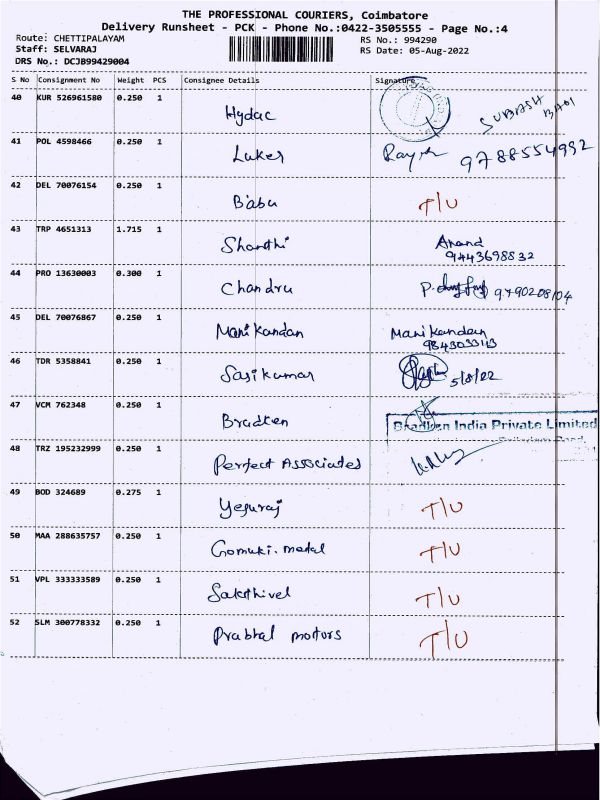 THE PROFESSIONAL COURIERS, Coimbatore
Delivery Runsheet - PCK - Phone No.:0422-3505555 - Page No.:4
Route: CHETTIPALAYAM RS No.: 994290
Staff: SELVARAJ RS Date: 05-Aug-2022
DRS No.: DCJB99429004
S No Consignment No Weight PCS Consignee Details Signature
40 KUR 526961580 0.250 1 Hydac SUBASH
41 POL 4598466 0.250 1 Luker 9788554992
42 DEL 70076154 0.250 1 Babu T/U
43 TRP 4651313 1.715 1 Shanthi Anand
9443698832
44 PRO 13630003 0.300 1 Chandru P.
45 DEL 70076867 0.250 1 Mani kandan Mani kandan
46 TDR 5358841 0.250 1 Sasi kumar 5/8/22
47 VCM 762348 0.250 1 Bradken Bradken India Private Limited
48 TRZ 195232999 0.250 1 Perfect Associates
49 BOD 324689 0.275 1 Yesuraj T/U
50 MAA 288635757 0.250 1 Gomuki. metal T/U
51 VPL 333333589 0.250 1 Sakthivel T/U
52 SLM 300778332 0.250 1 Prabhal motors T/U